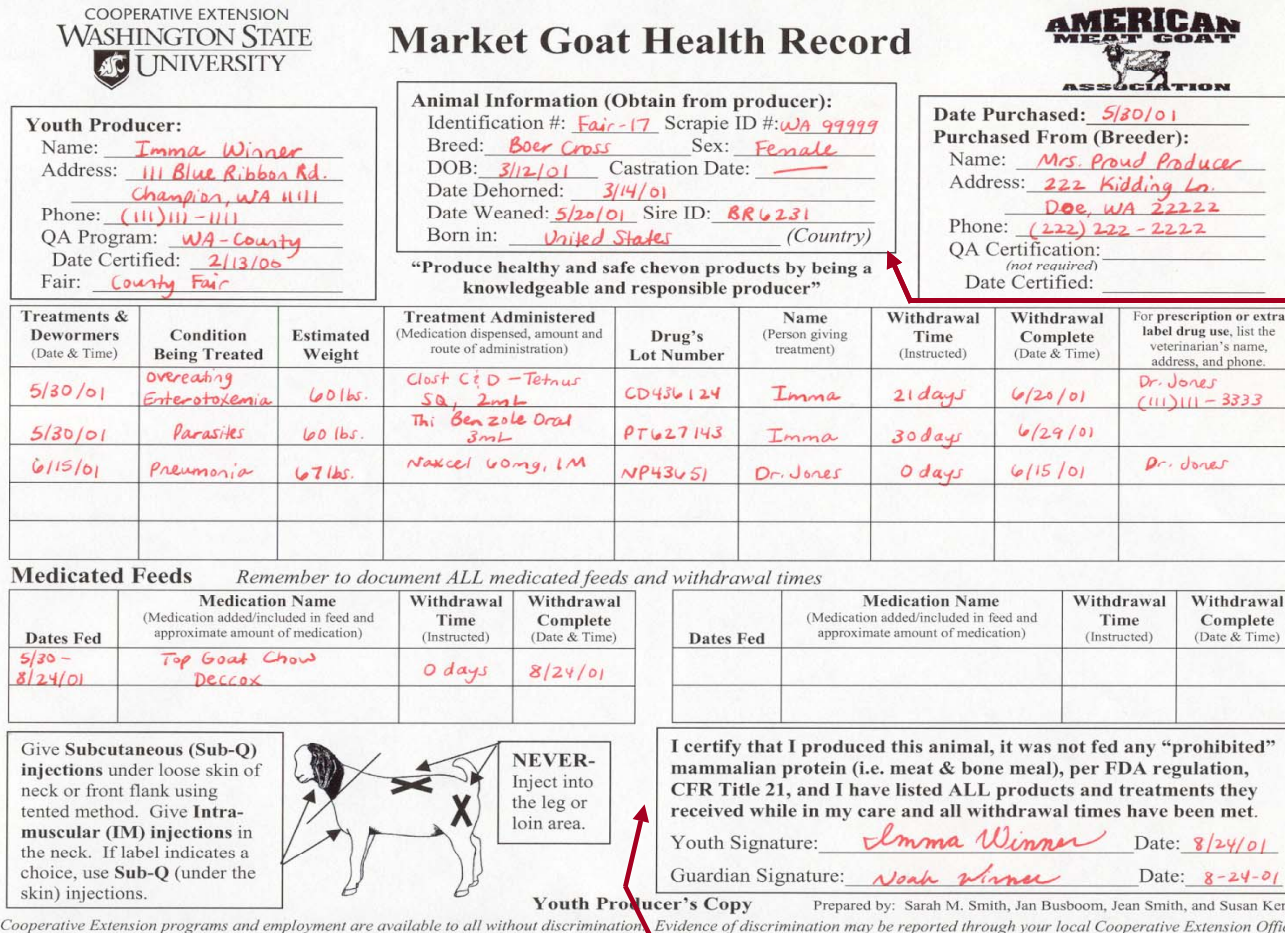 COOPERATIVE EXTENSION
WASHINGTON STATE
UNIVERSITY
Market Goat Health Record
AMERICAN
MEAT GOAT
ASSOCIATION
Youth Producer:
Name: Imma Winner
Address: 111 Blue Ribbon Rd.
Champion, WA 11111
Phone: (111)111-1111
QA Program: WA-County
Date Certified: 2/13/00
Fair: County Fair
Animal Information (Obtain from producer):
Identification #: Fair-17 Scrapie ID #: WA 99999
Breed: Boer Cross Sex: Female
DOB: 3/12/01 Castration Date: —
Date Dehorned: 3/14/01
Date Weaned: 5/20/01 Sire ID: BR6231
Born in: United States (Country)
"Produce healthy and safe chevon products by being a
knowledgeable and responsible producer"
Date Purchased: 5/30/01
Purchased From (Breeder):
Name: Mrs. Proud Producer
Address: 222 Kidding Ln.
Doe, WA 22222
Phone: (222) 222-2222
QA Certification:
(not required)
Date Certified:
Treatments & Dewormers (Date & Time) Condition Being Treated Estimated Weight Treatment Administered (Medication dispensed, amount and route of administration) Drug's Lot Number Name (Person giving treatment) Withdrawal Time (Instructed) Withdrawal Complete (Date & Time) For prescription or extra label drug use, list the veterinarian's name, address, and phone.
5/30/01 Overeating Enterotoxemia 60 lbs. Clost C & D - Tetnus SQ, 2mL CD436124 Imma 21 days 6/20/01 Dr. Jones (111)111-3333
5/30/01 Parasites 60 lbs. Thi Benzole Oral 3mL PT627143 Imma 30 days 6/29/01
6/15/01 Pneumonia 67 lbs. Naxcel 60mg, IM NP43651 Dr. Jones 0 days 6/15/01 Dr. Jones
Medicated Feeds Remember to document ALL medicated feeds and withdrawal times
Dates Fed Medication Name (Medication added/included in feed and approximate amount of medication) Withdrawal Time (Instructed) Withdrawal Complete (Date & Time)
5/30 - 8/24/01 Top Goat Chow Deccox 0 days 8/24/01
Dates Fed Medication Name (Medication added/included in feed and approximate amount of medication) Withdrawal Time (Instructed) Withdrawal Complete (Date & Time)
Give Subcutaneous (Sub-Q)
injections under loose skin of
neck or front flank using
tented method. Give Intra-
muscular (IM) injections in
the neck. If label indicates a
choice, use Sub-Q (under the
skin) injections.
NEVER-
Inject into
the leg or
loin area.
I certify that I produced this animal, it was not fed any "prohibited"
mammalian protein (i.e. meat & bone meal), per FDA regulation,
CFR Title 21, and I have listed ALL products and treatments they
received while in my care and all withdrawal times have been met.
Youth Signature: Imma Winner Date: 8/24/01
Guardian Signature: Noah Winner Date: 8-24-01
Youth Producer's Copy Prepared by: Sarah M. Smith, Jan Busboom, Jean Smith, and Susan
Cooperative Extension programs and employment are available to all without discrimination. Evidence of discrimination may be reported through your local Cooperative Extension